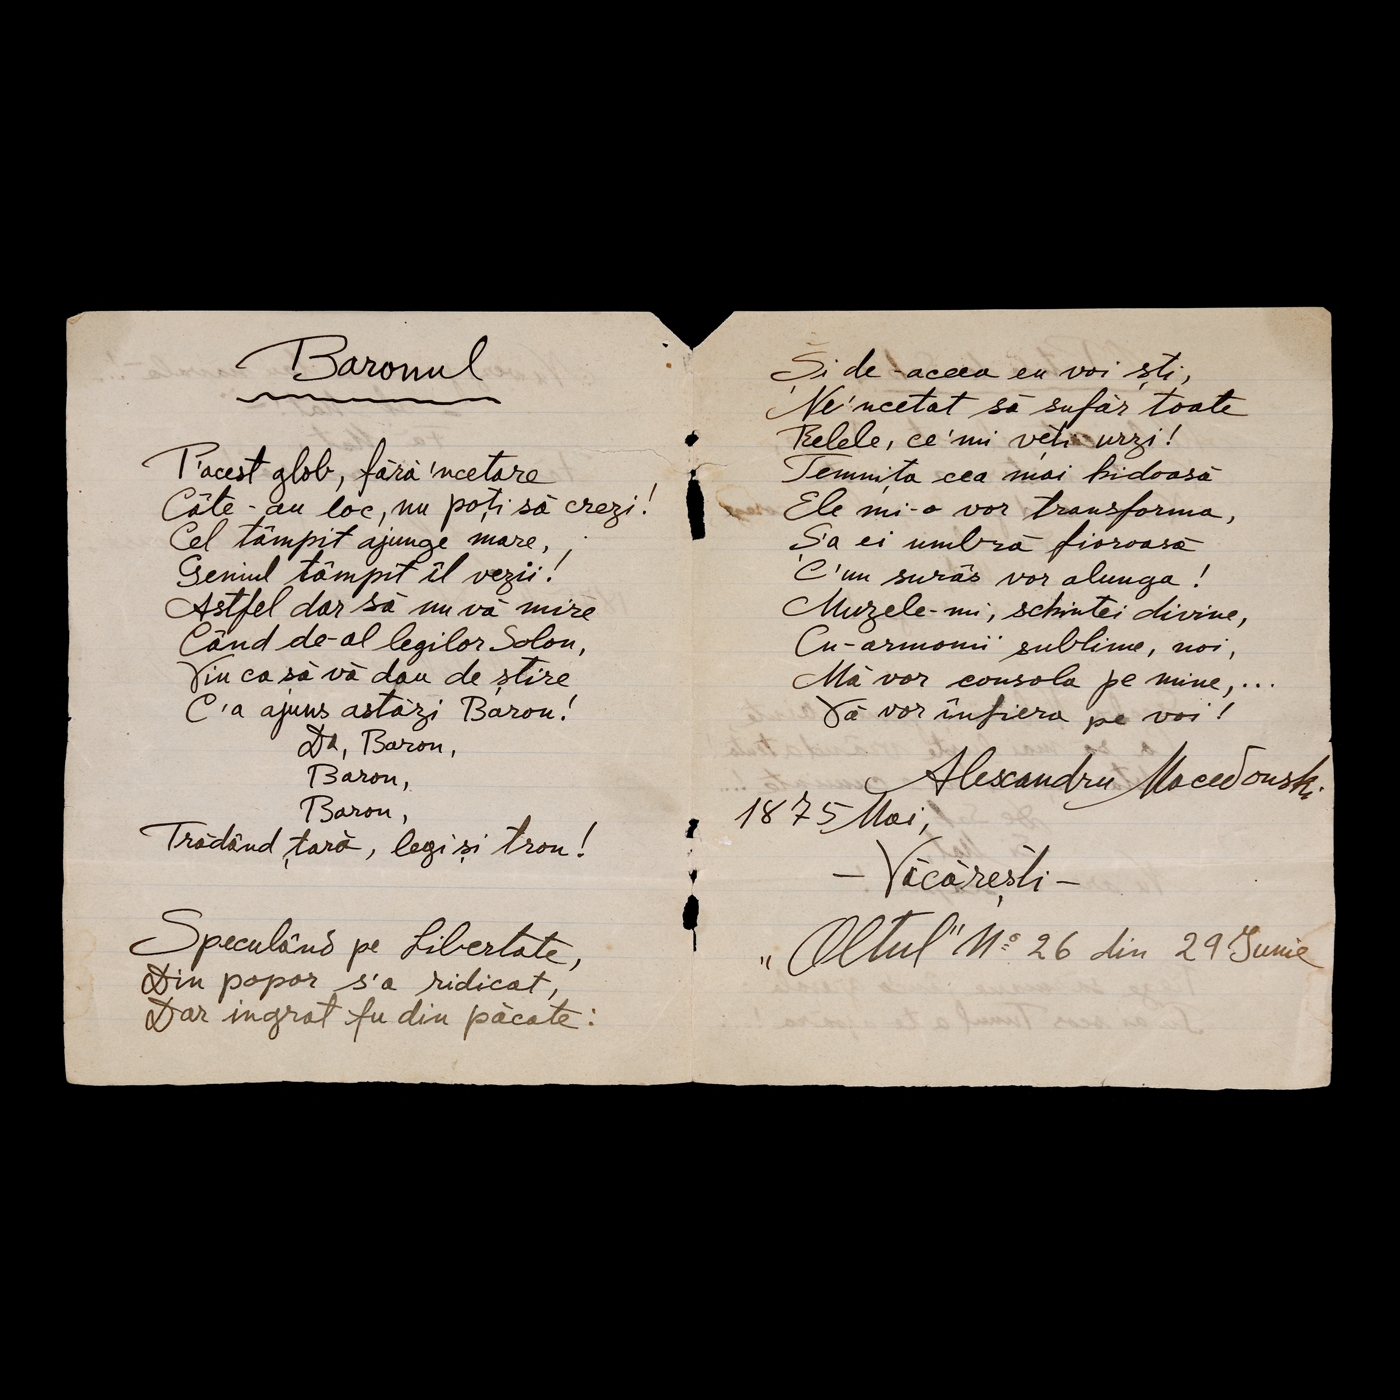 Baronul
P'acest glob, fără 'ncetare
Câte-au loc, nu poți să crezi!
Cel tâmpit ajunge mare,
Geniul tâmpit îl vezii!
Astfel dar să nu vă mire
Când de-al legilor Solon,
Viu ca să vă dau de știre
C'a ajuns astăzi Baron!
Da, Baron,
Baron,
Baron,
Trădând țară, legi și tron!
Speculând pe Libertate,
Din popor s'a ridicat,
Dar ingrat fu din păcate:
Și de-aceea eu voi ști,
Ne'ncetat să sufăr toate
Relele, ce'mi veți urzi!
Temnița cea mai hidoasă
Ele mi-o vor transforma,
Ș'a ei umbră fioroasă
C'un surâs vor alunga!
Muzele-mi, schintei divine,
Cu-armonii sublime, noi,
Mă vor consola pe mine,...
Vă vor înfiera pe voi!
Alexandru Macedonski.
1875 Mai,
— Văcărești —
„Oltul" No 26 din 29 Iunie